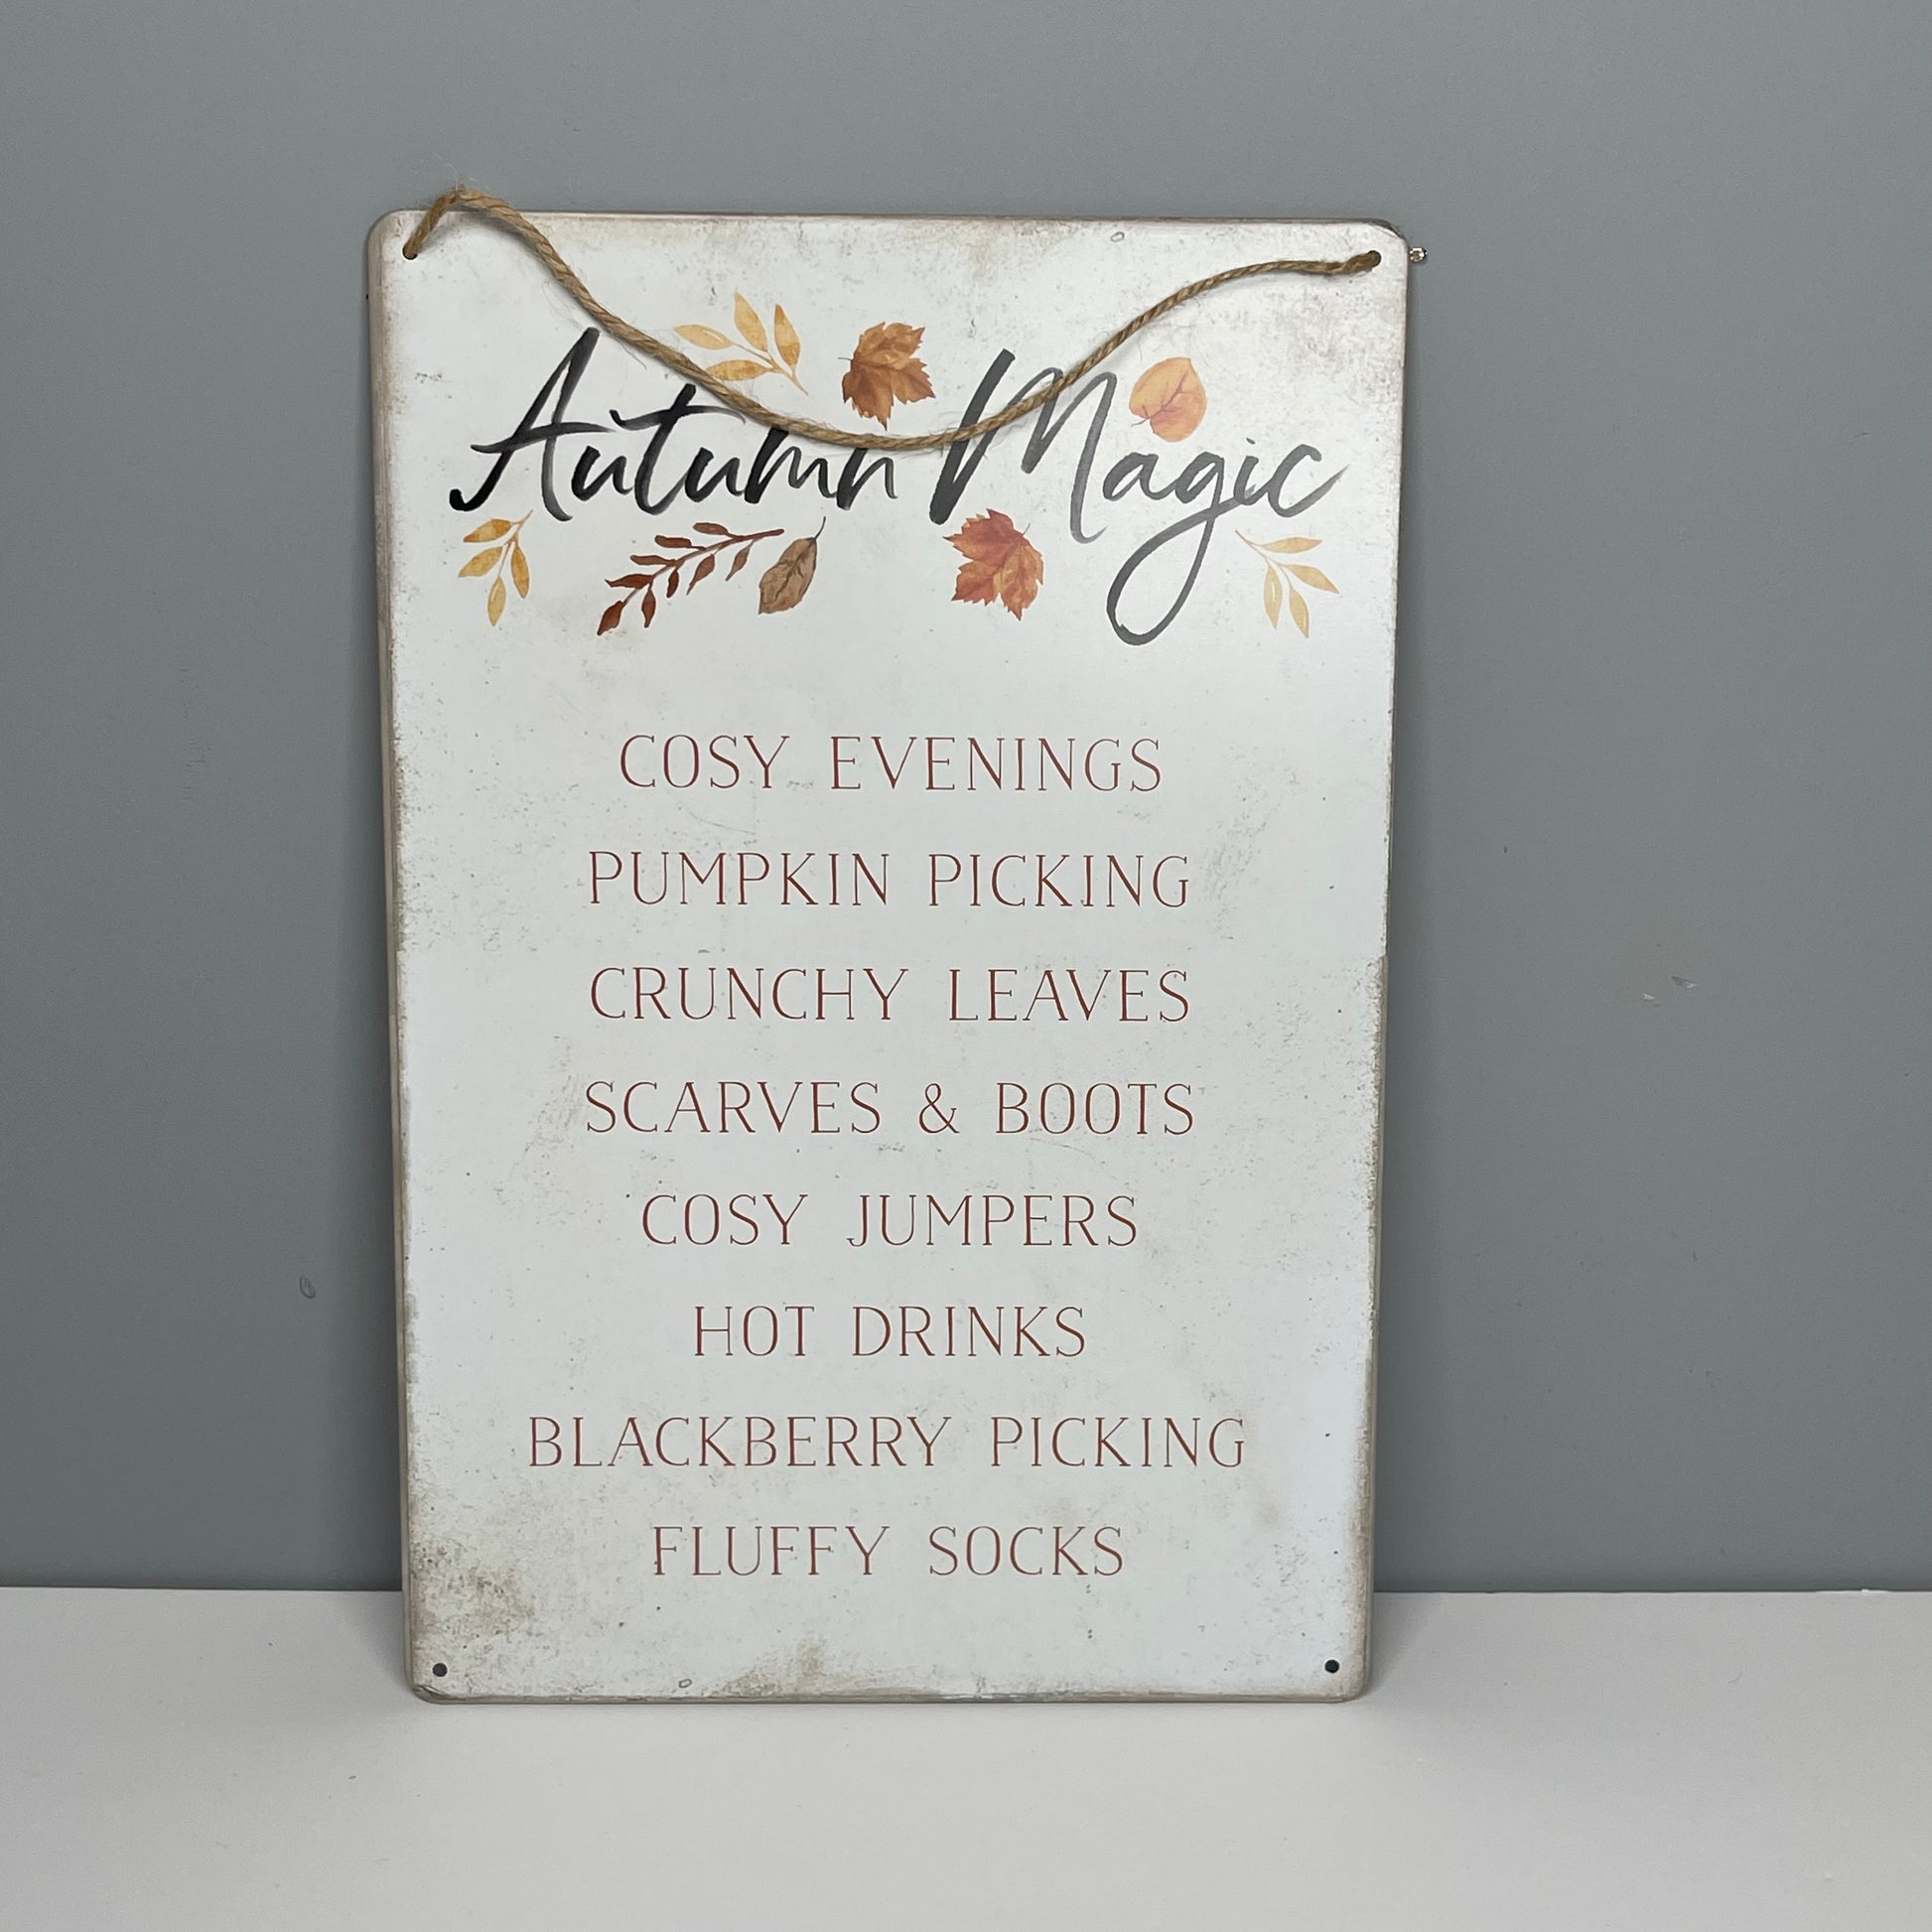 Autumn Magic
COSY EVENINGS
PUMPKIN PICKING
CRUNCHY LEAVES
SCARVES & BOOTS
COSY JUMPERS
HOT DRINKS
BLACKBERRY PICKING
FLUFFY SOCKS